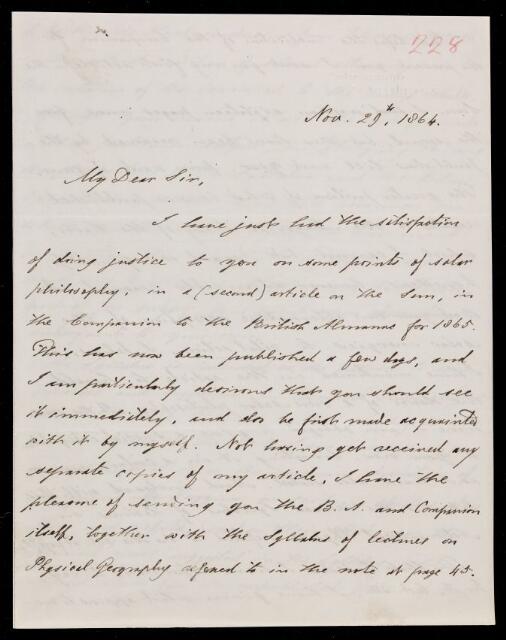 228
Nov. 29th, 1864.
My Dear Sir,
I have just had the satisfaction
of doing justice to you on some points of solar
philosophy, in a (second) article on the Sun, in
the Companion to the British Almanac for 1865.
This has now been published a few days, and
I am particularly desirous that you should see
it immediately, and also be first made acquainted
with it by myself. Not having yet received any
separate copies of my article, I have the
pleasure of sending you the B. A. and Companion
itself, together with the Syllabus of lectures on
Physical Geography referred to in the note at page 45.